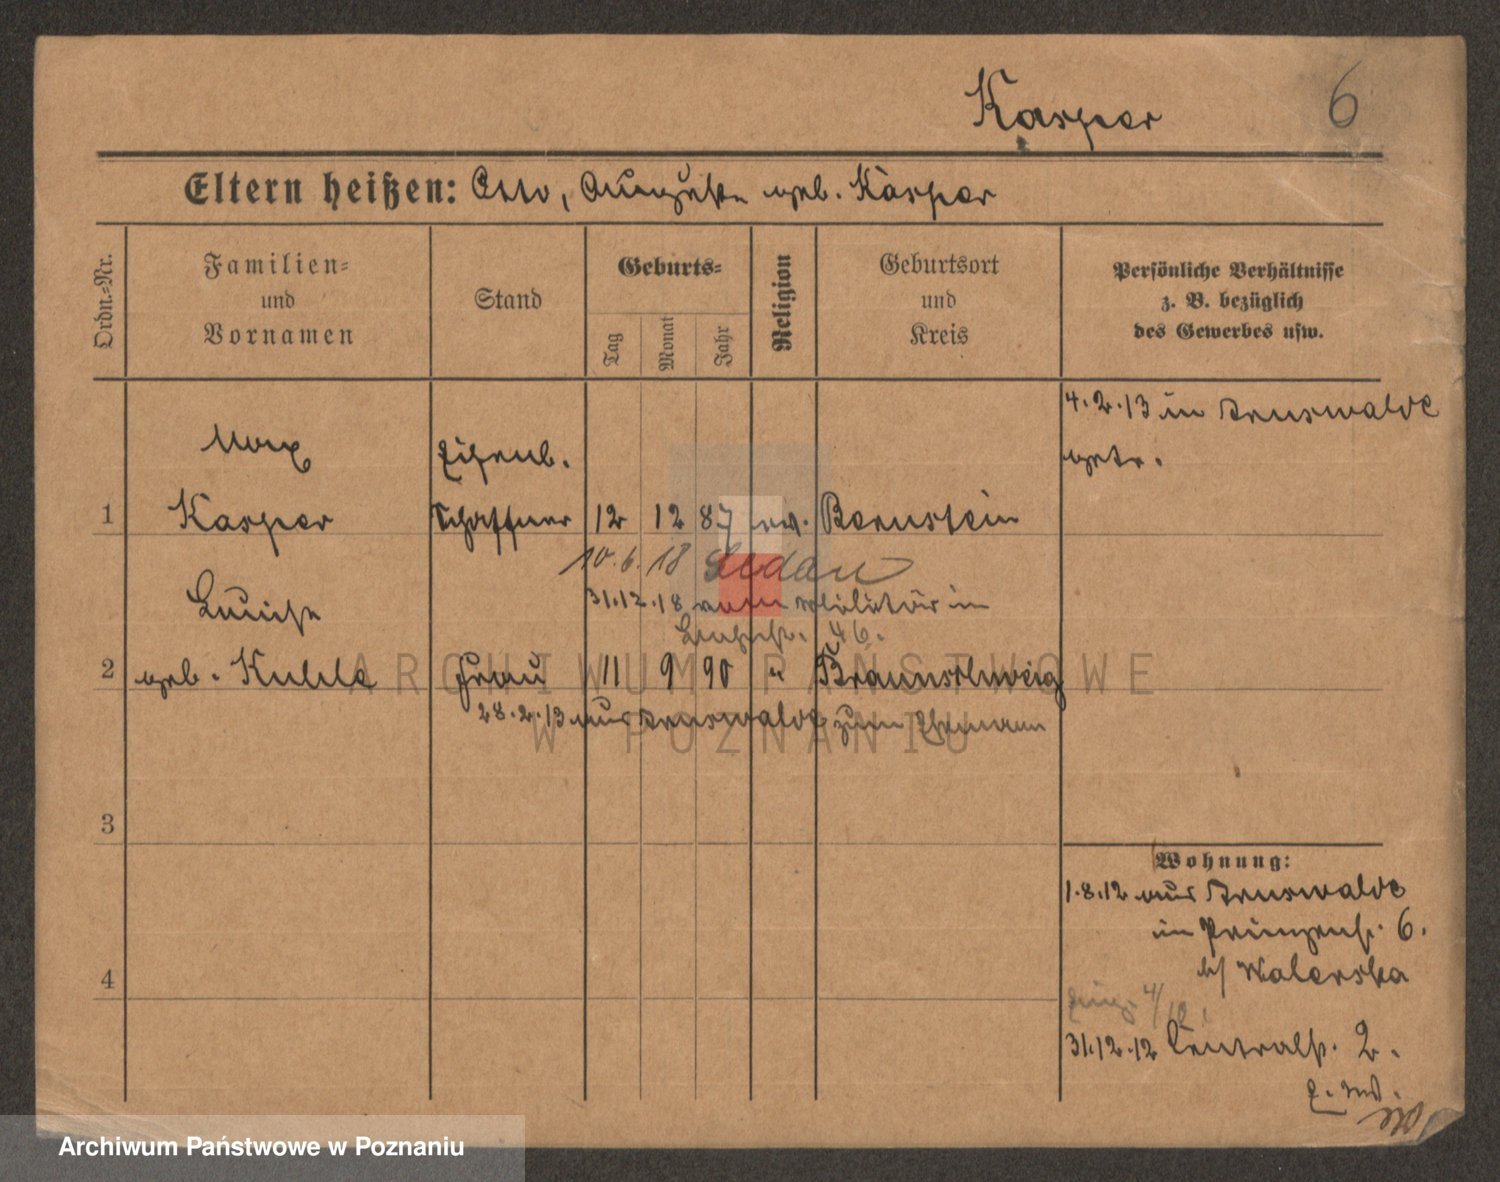 Kasper 6
Eltern heißen: Otto, Auguste geb. Kasper
Ordn.-Nr.
Familien-
und
Vornamen
Stand
Geburts-
Tag
Monat
Jahr
Religion
Geburtsort
und
Kreis
Persönliche Verhältnisse
z. B. bezüglich
des Gewerbes usw.
4.2.13 in Arnswalde
getr.
Max Eisenb.
1 Kasper Schaffner 12 12 87 ev. Bernstein
10.6.18 Sedan
Luise
31.12.18 vom Militär in
46.
2 geb. Kuhle Frau 11 9 90 " Braunschweig
28.2.13 aus Arnswalde zum Ehemann
3
4
Wohnung:
1.8.12 aus Arnswalde
in Prinzenstr. 6.
b/ Walerska
4/10.
31.12.12 Centralstr. 2.
ARCHIWUM PAŃSTWOWE
W POZNANIU
Archiwum Państwowe w Poznaniu